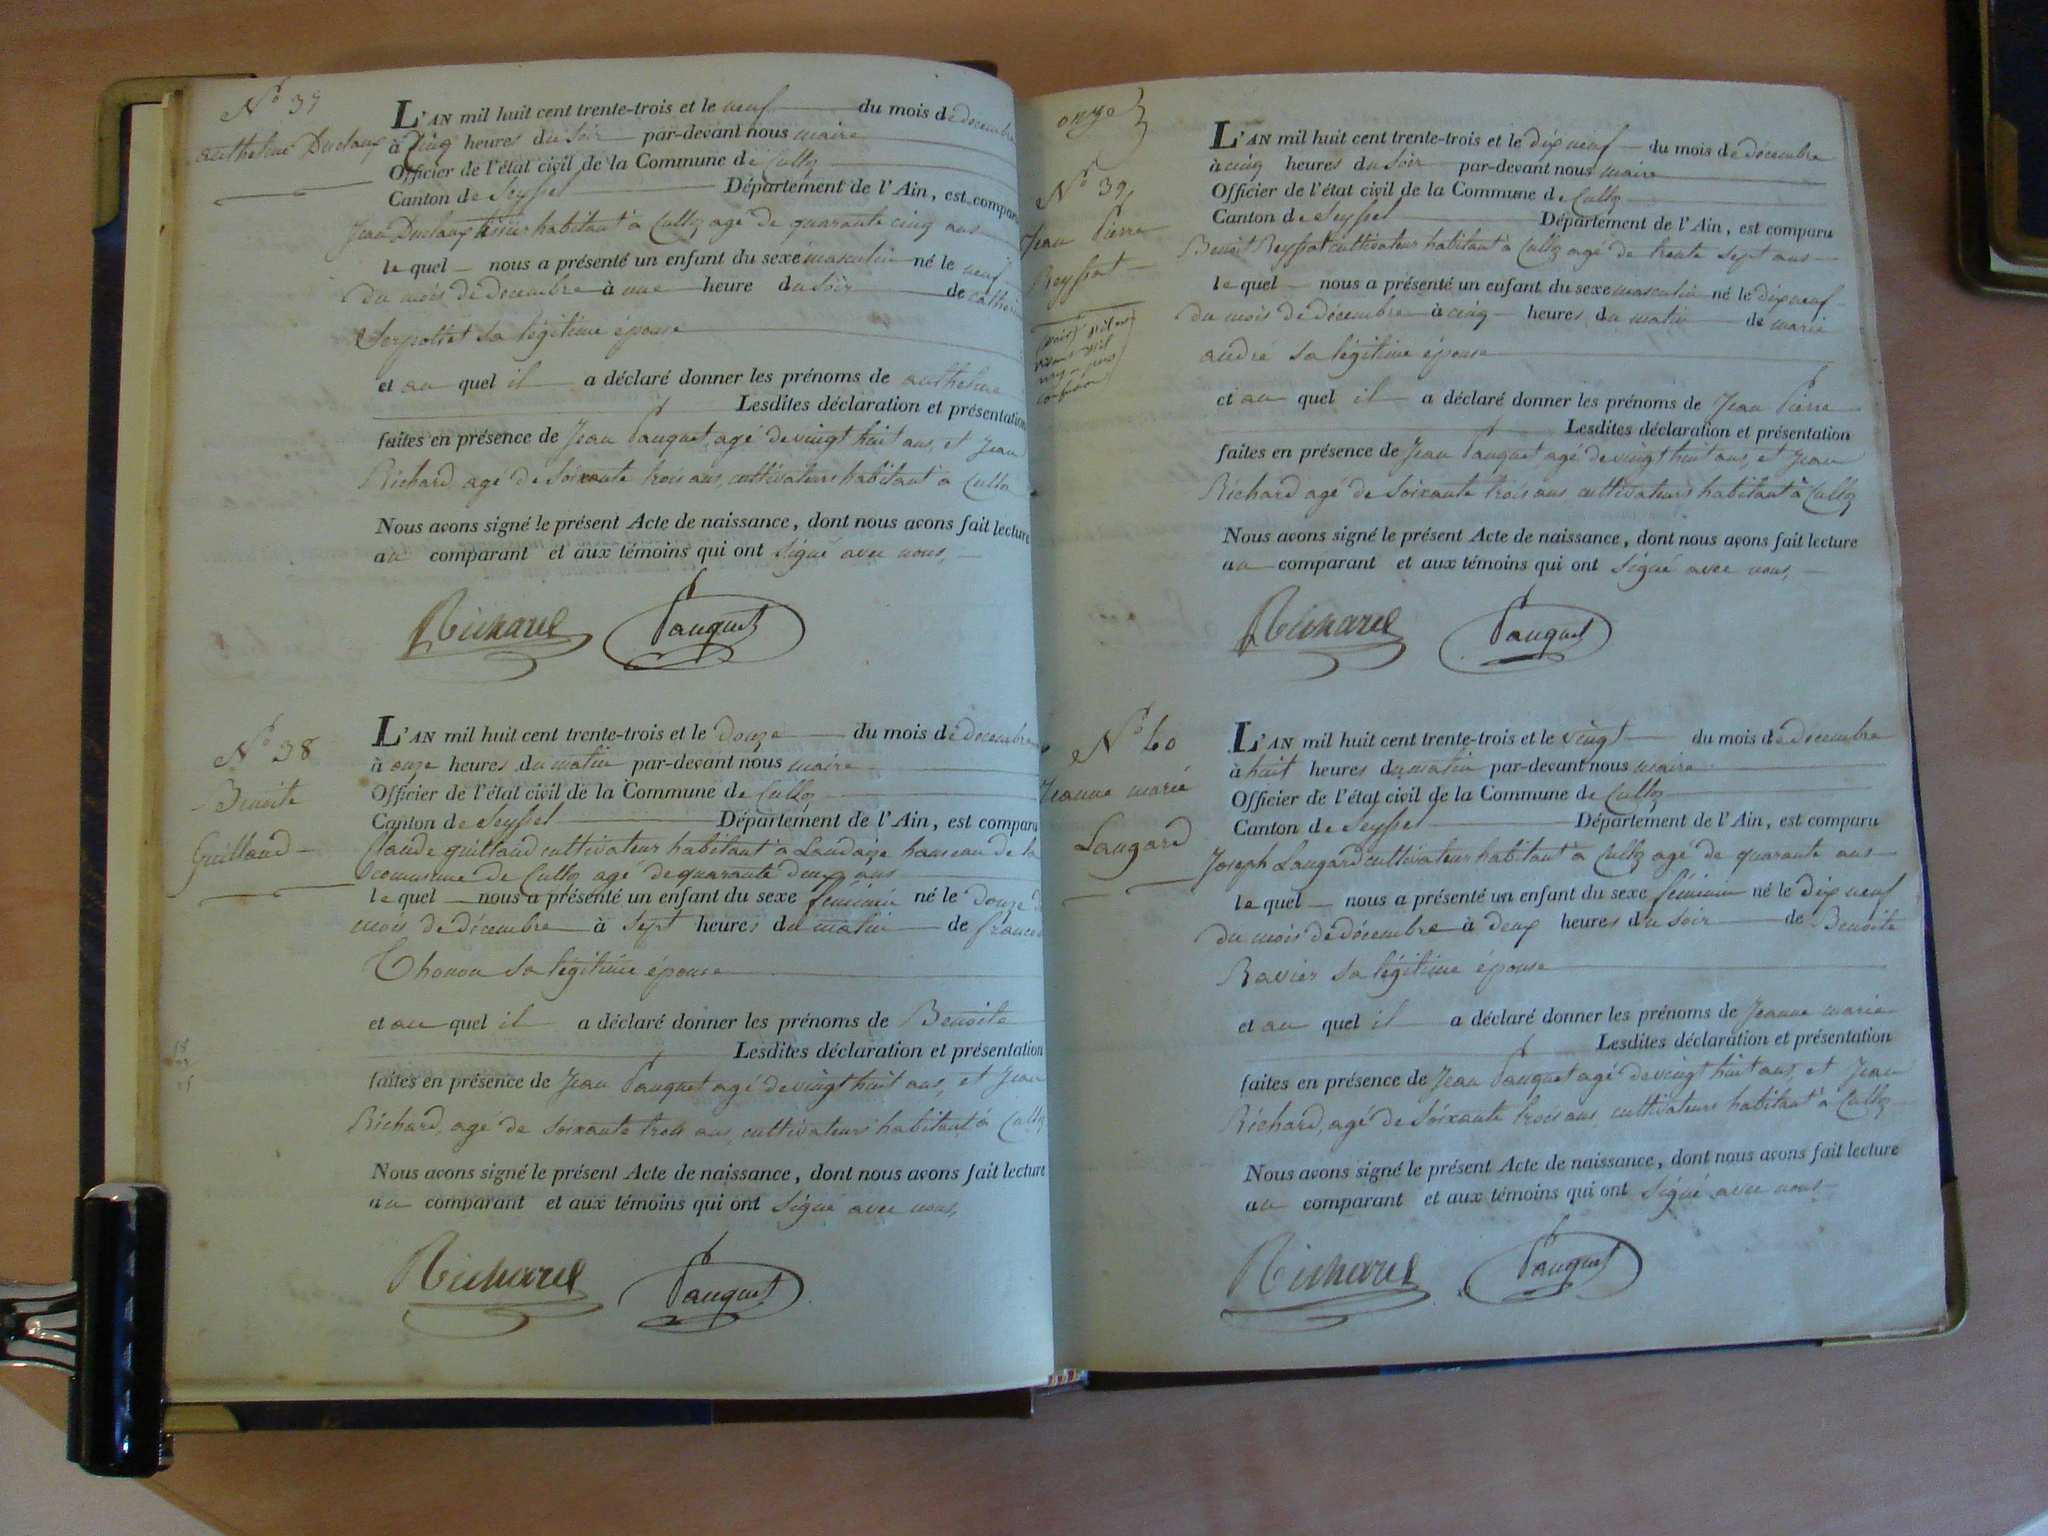 N° 37
anthelme Duclaux
L'AN mil huit cent trente-trois et le neuf du mois de décembre
à cinq heures du soir par-devant nous maire
Officier de l'état civil de la Commune de Culloz
Canton de Seyssel Département de l'Ain, est comparu
Jean Duclaux tissier habitant à Culloz agé de quarante cinq ans
le quel nous a présenté un enfant du sexe masculin né le neuf
du mois de decembre à une heure du soir de Catherine
Serpollet sa légitime épouse
et au quel il a déclaré donner les prénoms de anthelme
Lesdites déclaration et présentation
faites en présence de Jean Pauquet, agé de vingt huit ans, et Jean
Richard, agé de soixante trois ans, cultivateurs habitant à Culloz
Nous avons signé le présent Acte de naissance, dont nous avons fait lecture
au comparant et aux témoins qui ont signé avec nous,
Richard Pauquet
N° 38
Benoite
Guilland
L'AN mil huit cent trente-trois et le douze du mois de décembre
à onze heures du matin par-devant nous maire
Officier de l'état civil de la Commune de Culloz
Canton de Seyssel Département de l'Ain, est comparu
Claude guilland cultivateur habitant à Landaize hameau de la
commune de Culloz agé de quarante deux ans
le quel nous a présenté un enfant du sexe féminin né le douze du
mois de décembre à sept heures du matin de
Thonon sa légitime épouse
et au quel il a déclaré donner les prénoms de Benoite
Lesdites déclaration et présentation
faites en présence de Jean Pauquet agé de vingt huit ans, et Jean
Richard, agé de soixante trois ans, cultivateurs habitant à Culloz
Nous avons signé le présent Acte de naissance, dont nous avons fait lecture
au comparant et aux témoins qui ont signé avec nous,
Richard Pauquet
onze
N° 39
Jean Pierre
Reyssat
L'AN mil huit cent trente-trois et le dix neuf du mois de décembre
à cinq heures du soir par-devant nous maire
Officier de l'état civil de la Commune de Culloz
Canton de Seyssel Département de l'Ain, est comparu
Benoit Reyssat cultivateur habitant à Culloz agé de trente sept ans
le quel nous a présenté un enfant du sexe masculin né le dix neuf
du mois de décembre à cinq heures du matin de marie
andré sa légitime épouse
et au quel il a déclaré donner les prénoms de Jean Pierre
Lesdites déclaration et présentation
faites en présence de Jean Pauquet agé de vingt huit ans, et Jean
Richard agé de soixante trois ans, cultivateurs habitant à Culloz
Nous avons signé le présent Acte de naissance, dont nous avons fait lecture
au comparant et aux témoins qui ont signé avec nous,
Richard Pauquet
N° 40
Jeanne marie
Laugard
L'AN mil huit cent trente-trois et le vingt du mois de décembre
à huit heures du matin par-devant nous maire
Officier de l'état civil de la Commune de Culloz
Canton de Seyssel Département de l'Ain, est comparu
Joseph Laugard cultivateur habitant à Culloz agé de quarante ans
le quel nous a présenté un enfant du sexe féminin né le dix neuf
du mois de décembre à deux heures du soir de Benoite
Ravier sa légitime épouse
et au quel il a déclaré donner les prénoms de Jeanne marie
Lesdites déclaration et présentation
faites en présence de Jean Pauquet agé de vingt huit ans, et Jean
Richard, agé de soixante trois ans, cultivateurs habitant à Culloz
Nous avons signé le présent Acte de naissance, dont nous avons fait lecture
au comparant et aux témoins qui ont signé avec nous
Richard Pauquet